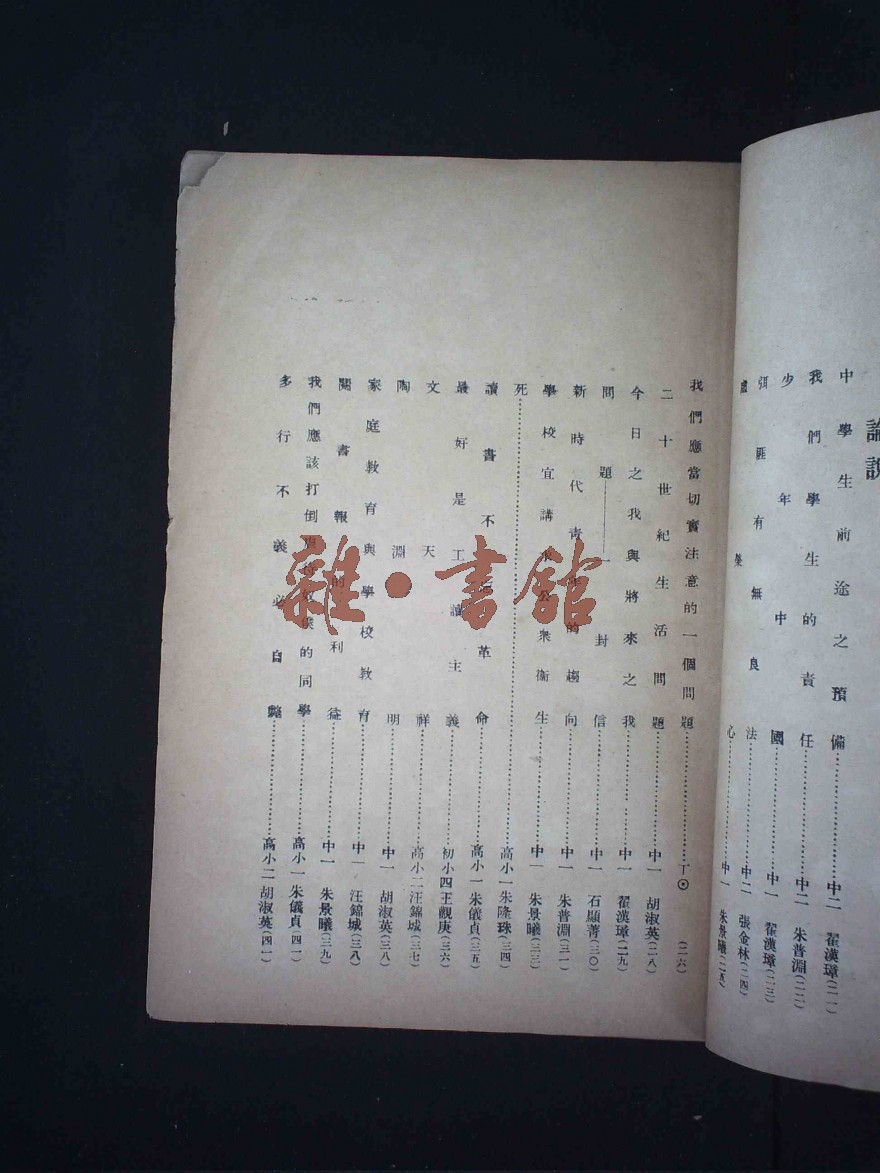 論說
中學生前途之預備……中二 翟漢璋(二一)
我們學生的責任……中二 朱普淵(二二)
少年中國……中一 翟漢璋(二三)
有無良法……中二 張金林(二四)
虛榮心……中一 朱景曦(二五)
我們應當切實注意的一個問題……丁⊙ (二六)
二十世紀生活問題……中一 胡淑英(二八)
今日之我與將來之我……中一 翟漢璋(二九)
問題——一封信……中一 石顯菁(三〇)
新時代青年的趨向……中一 朱普淵(三一)
學校宜講求公衆衞生……中一 朱景曦(三三)
死……高小一 朱隆珠(三四)
讀書不忘革命……高小一 朱儀貞(三五)
最好是工讀主義……初小四 王觀庚(三六)
文天祥……高小二 汪錦城(三七)
陶淵明……中一 胡淑英(三八)
家庭教育與學校教育……中一 汪錦城(三八)
閱書報的利益……中一 朱景曦(三九)
我們應該打倒虐待奴僕的同學……高小一 朱儀貞(四一)
多行不義必自斃……高小二 胡淑英(四一)
雜·書館